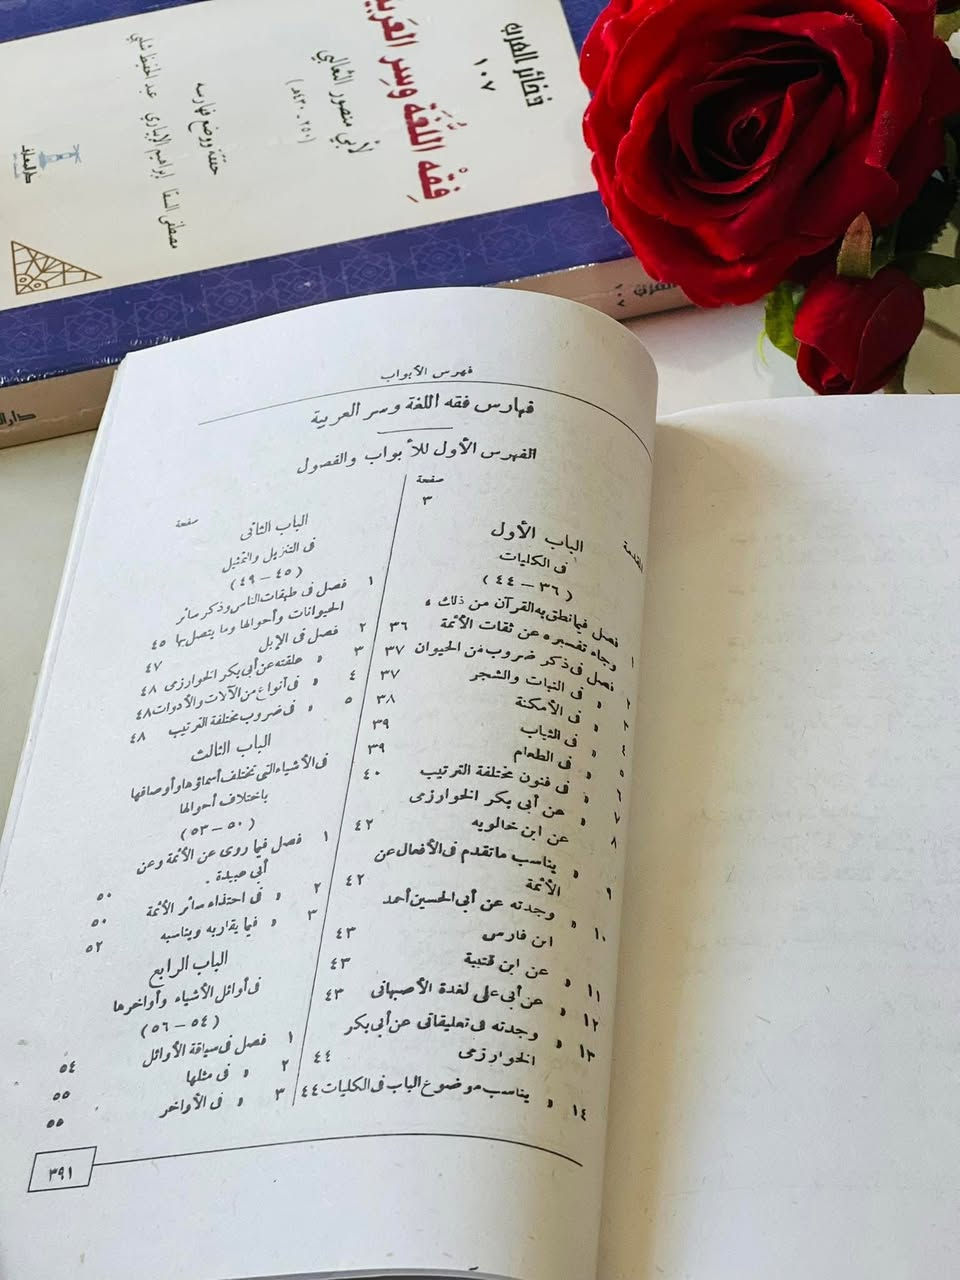 ذخائر العرب
١٠٧
فِقْه اللُّغَة وَسِر العَرَبية
لأبي منصور الثعالبي
(٣٥٠ - ٤٣٠هـ)
حققه ووضع فهارسه
مصطفى السقا إبراهيم الإبياري عبد الحفيظ شلبي
دار المعارف
١٠٧
فهرس الأبواب
فهارس فقه اللغة وسر العربية
الفهرس الأول للأبواب والفصول
صفحة
المقدمة ٣
الباب الأول
فى الكليات
(٣٦ – ٤٤)
١ فصل فيما نطق به القرآن من ذلك ،
وجاء تفسيره عن ثقات الأئمة ٣٦
٢ فصل فى ذكر ضروب من الحيوان ٣٧
٣ » فى النبات والشجر ٣٧
٤ » فى الأمكنة ٣٨
٥ » فى الثياب ٣٩
٦ » فى الطعام ٣٩
٧ » فى فنون مختلفة الترتيب ٤٠
عن أبى بكر الخوارزمى
٨ عن ابن خالويه ٤٢
٩ » يناسب ما تقدم فى الأفعال عن
الأئمة ٤٢
١٠ » وجدته عن أبى الحسين أحمد
ابن فارس ٤٣
١١ » عن ابن قتيبة ٤٣
١٢ » عن أبى على لغدة الأصبهانى ٤٣
١٣ » وجدته فى تعليقاتى عن أبى بكر
الخوارزمى ٤٤
١٤ » يناسب موضوع الباب فى الكليات ٤٤
صفحة
الباب الثانى
فى التنزيل والتمثيل
(٤٥ – ٤٩)
١ فصل فى طبقات الناس وذكر سائر
الحيوانات وأحوالها وما يتصل بها ٤٥
٢ فصل فى الإبل ٤٧
٣ » علقته عن أبى بكر الخوارزمى ٤٨
٤ » فى أنواع من الآلات والأدوات ٤٨
٥ » فى ضروب مختلفة الترتيب ٤٨
الباب الثالث
فى الأشياء التى تختلف أسماؤها وأوصافها
باختلاف أحوالها
(٥٠ – ٥٣)
١ فصل فيما روى عن الأئمة وعن
أبى عبيدة . ٥٠
٢ » فى احتذاء سائر الأئمة ٥٠
٣ » فيما يقاربه ويناسبه ٥٢
الباب الرابع
فى أوائل الأشياء وأواخرها
(٥٤ – ٥٦)
١ فصل فى سياقة الأوائل ٥٤
٢ » فى مثلها ٥٥
٣ » فى الأواخر ٥٥
٣٩١